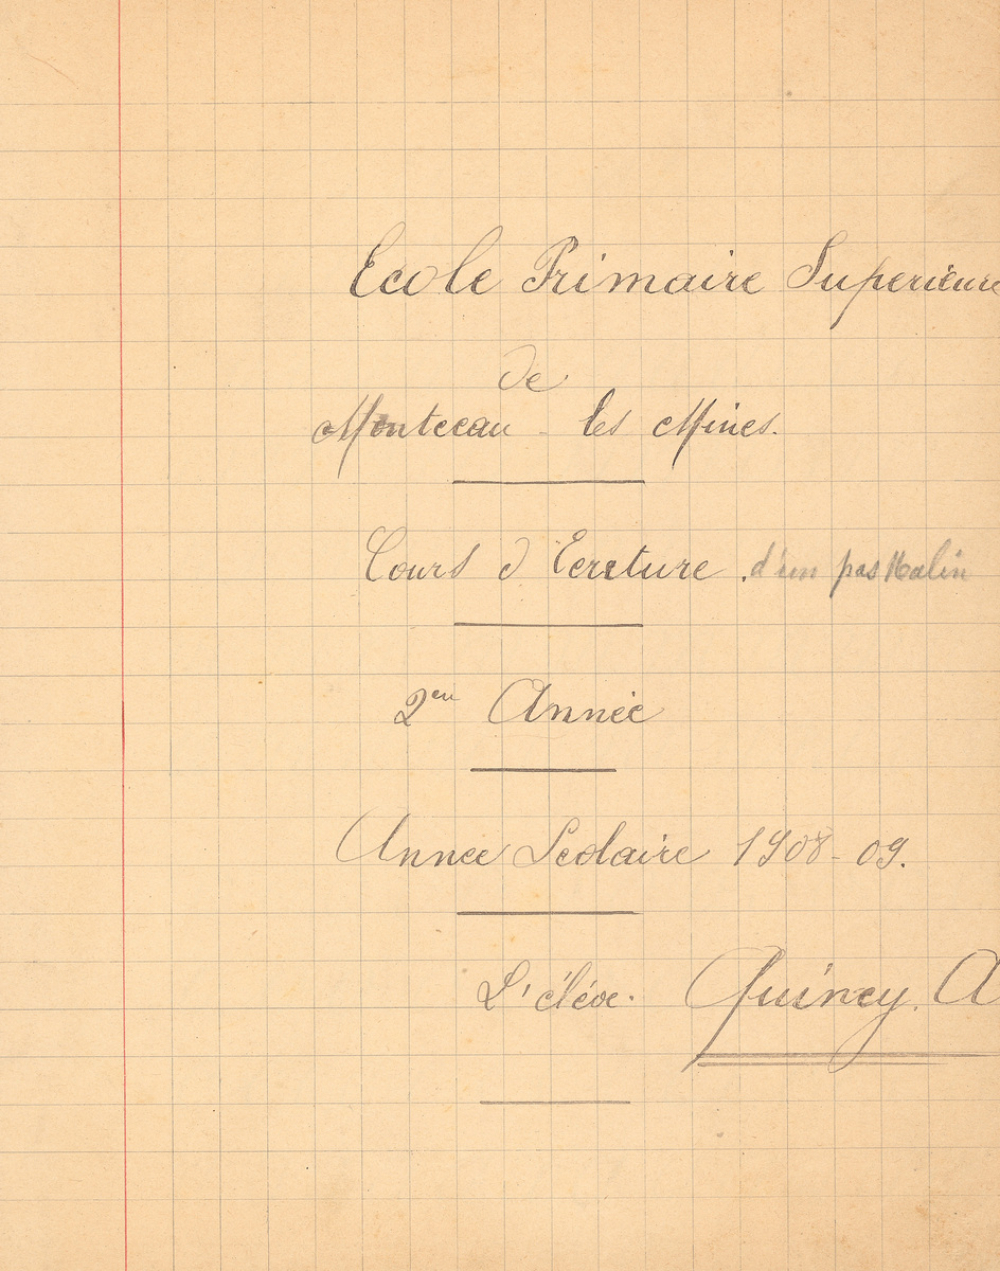 Ecole Primaire Superieure
de
Montceau - les Mines.
Cours d'Ecriture. d'un pas Malin
2em Année
Année Scolaire 1908-09.
L'éléve. Quincy. A